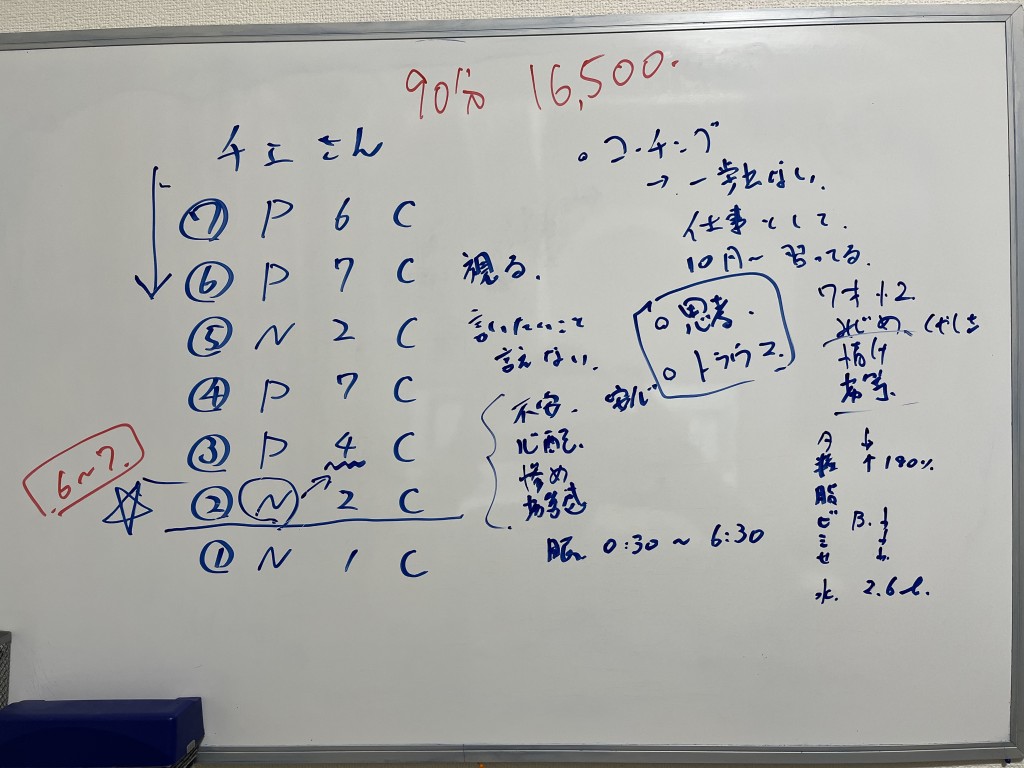 90分 16,500.
チエさん
⑦ P 6 C
⑥ P 7 C 視る.
⑤ N 2 C 言いたいこと
言えない.
④ P 7 C
③ P 4 C
② N 2 C
① N 1 C
6~7.
不安. 安心
心配.
惨め
劣等感
眠 0:30 ~ 6:30
・コーチング
→ 一歩出ない.
仕事として.
10月~ 習ってる.
○ 思考.
○ トラウマ.
7才 +2
みじめ、くやしさ
情け
劣等.
タ ↓
糖 ↑ 190%
脂
ビ B. ↓
ミ ↓
セ ↓
水. 2.6ℓ.